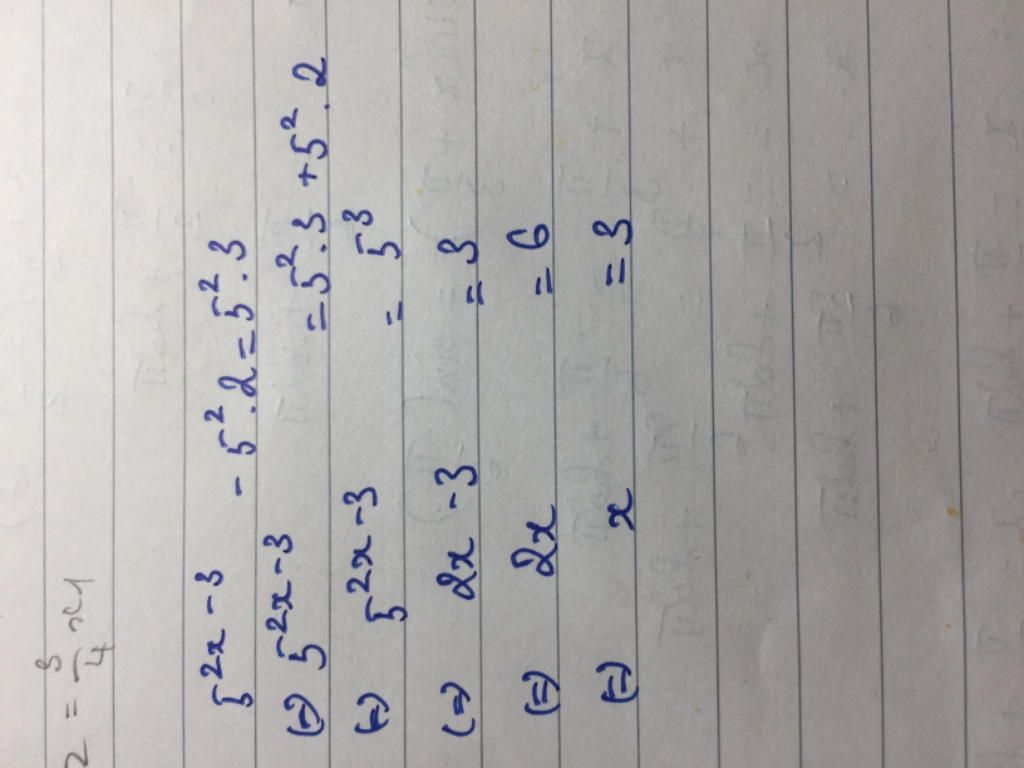 2 = 3/4 x1
5^{2x-3} - 5^2 . 2 = 5^2 . 3
(=) 5^{2x-3} = 5^2 . 3 + 5^2 . 2
(=) 5^{2x-3} = 5^3
(=) 2x - 3 = 3
(=) 2x = 6
(=) x = 3